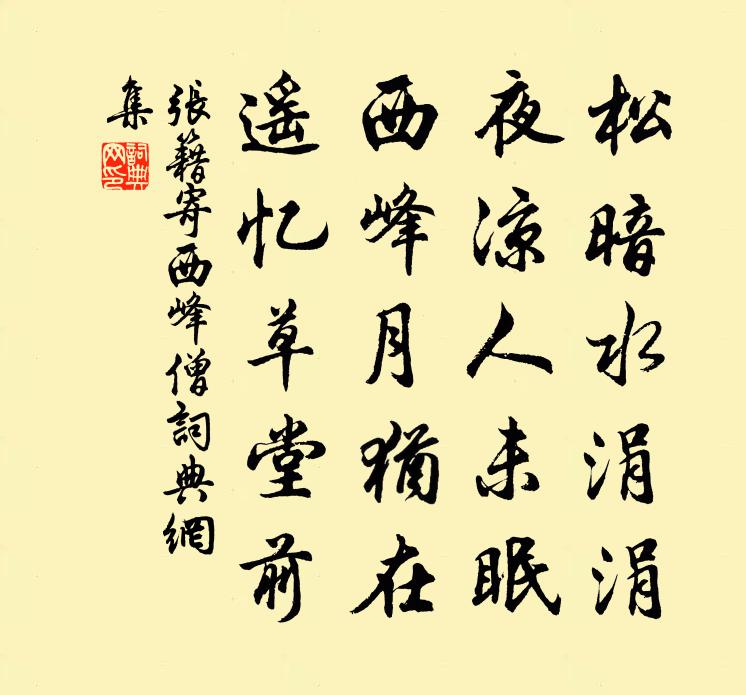 松暗水涓涓
夜凉人未眠
西峰月犹在
遥忆草堂前
張籍寄西峰僧詞典網
集
詞典網印